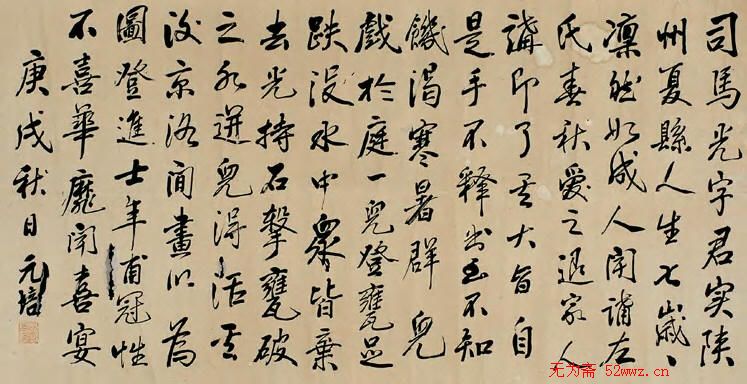 司馬光字君实陕
州夏縣人生七歲〻
凛然如成人闻講左
氏春秋愛之退家人
講即了其大旨自
是手不釋書至不知
饑渴寒暑群兒
戲於庭一兒登甕足
跌没水中眾皆棄
去光持石擊甕破
之水迸兒得活其
後京洛间畫以為
圖登進士年甫冠性
不喜華靡闻喜宴
庚戌秋日元培
无为斋 52wwz.cn